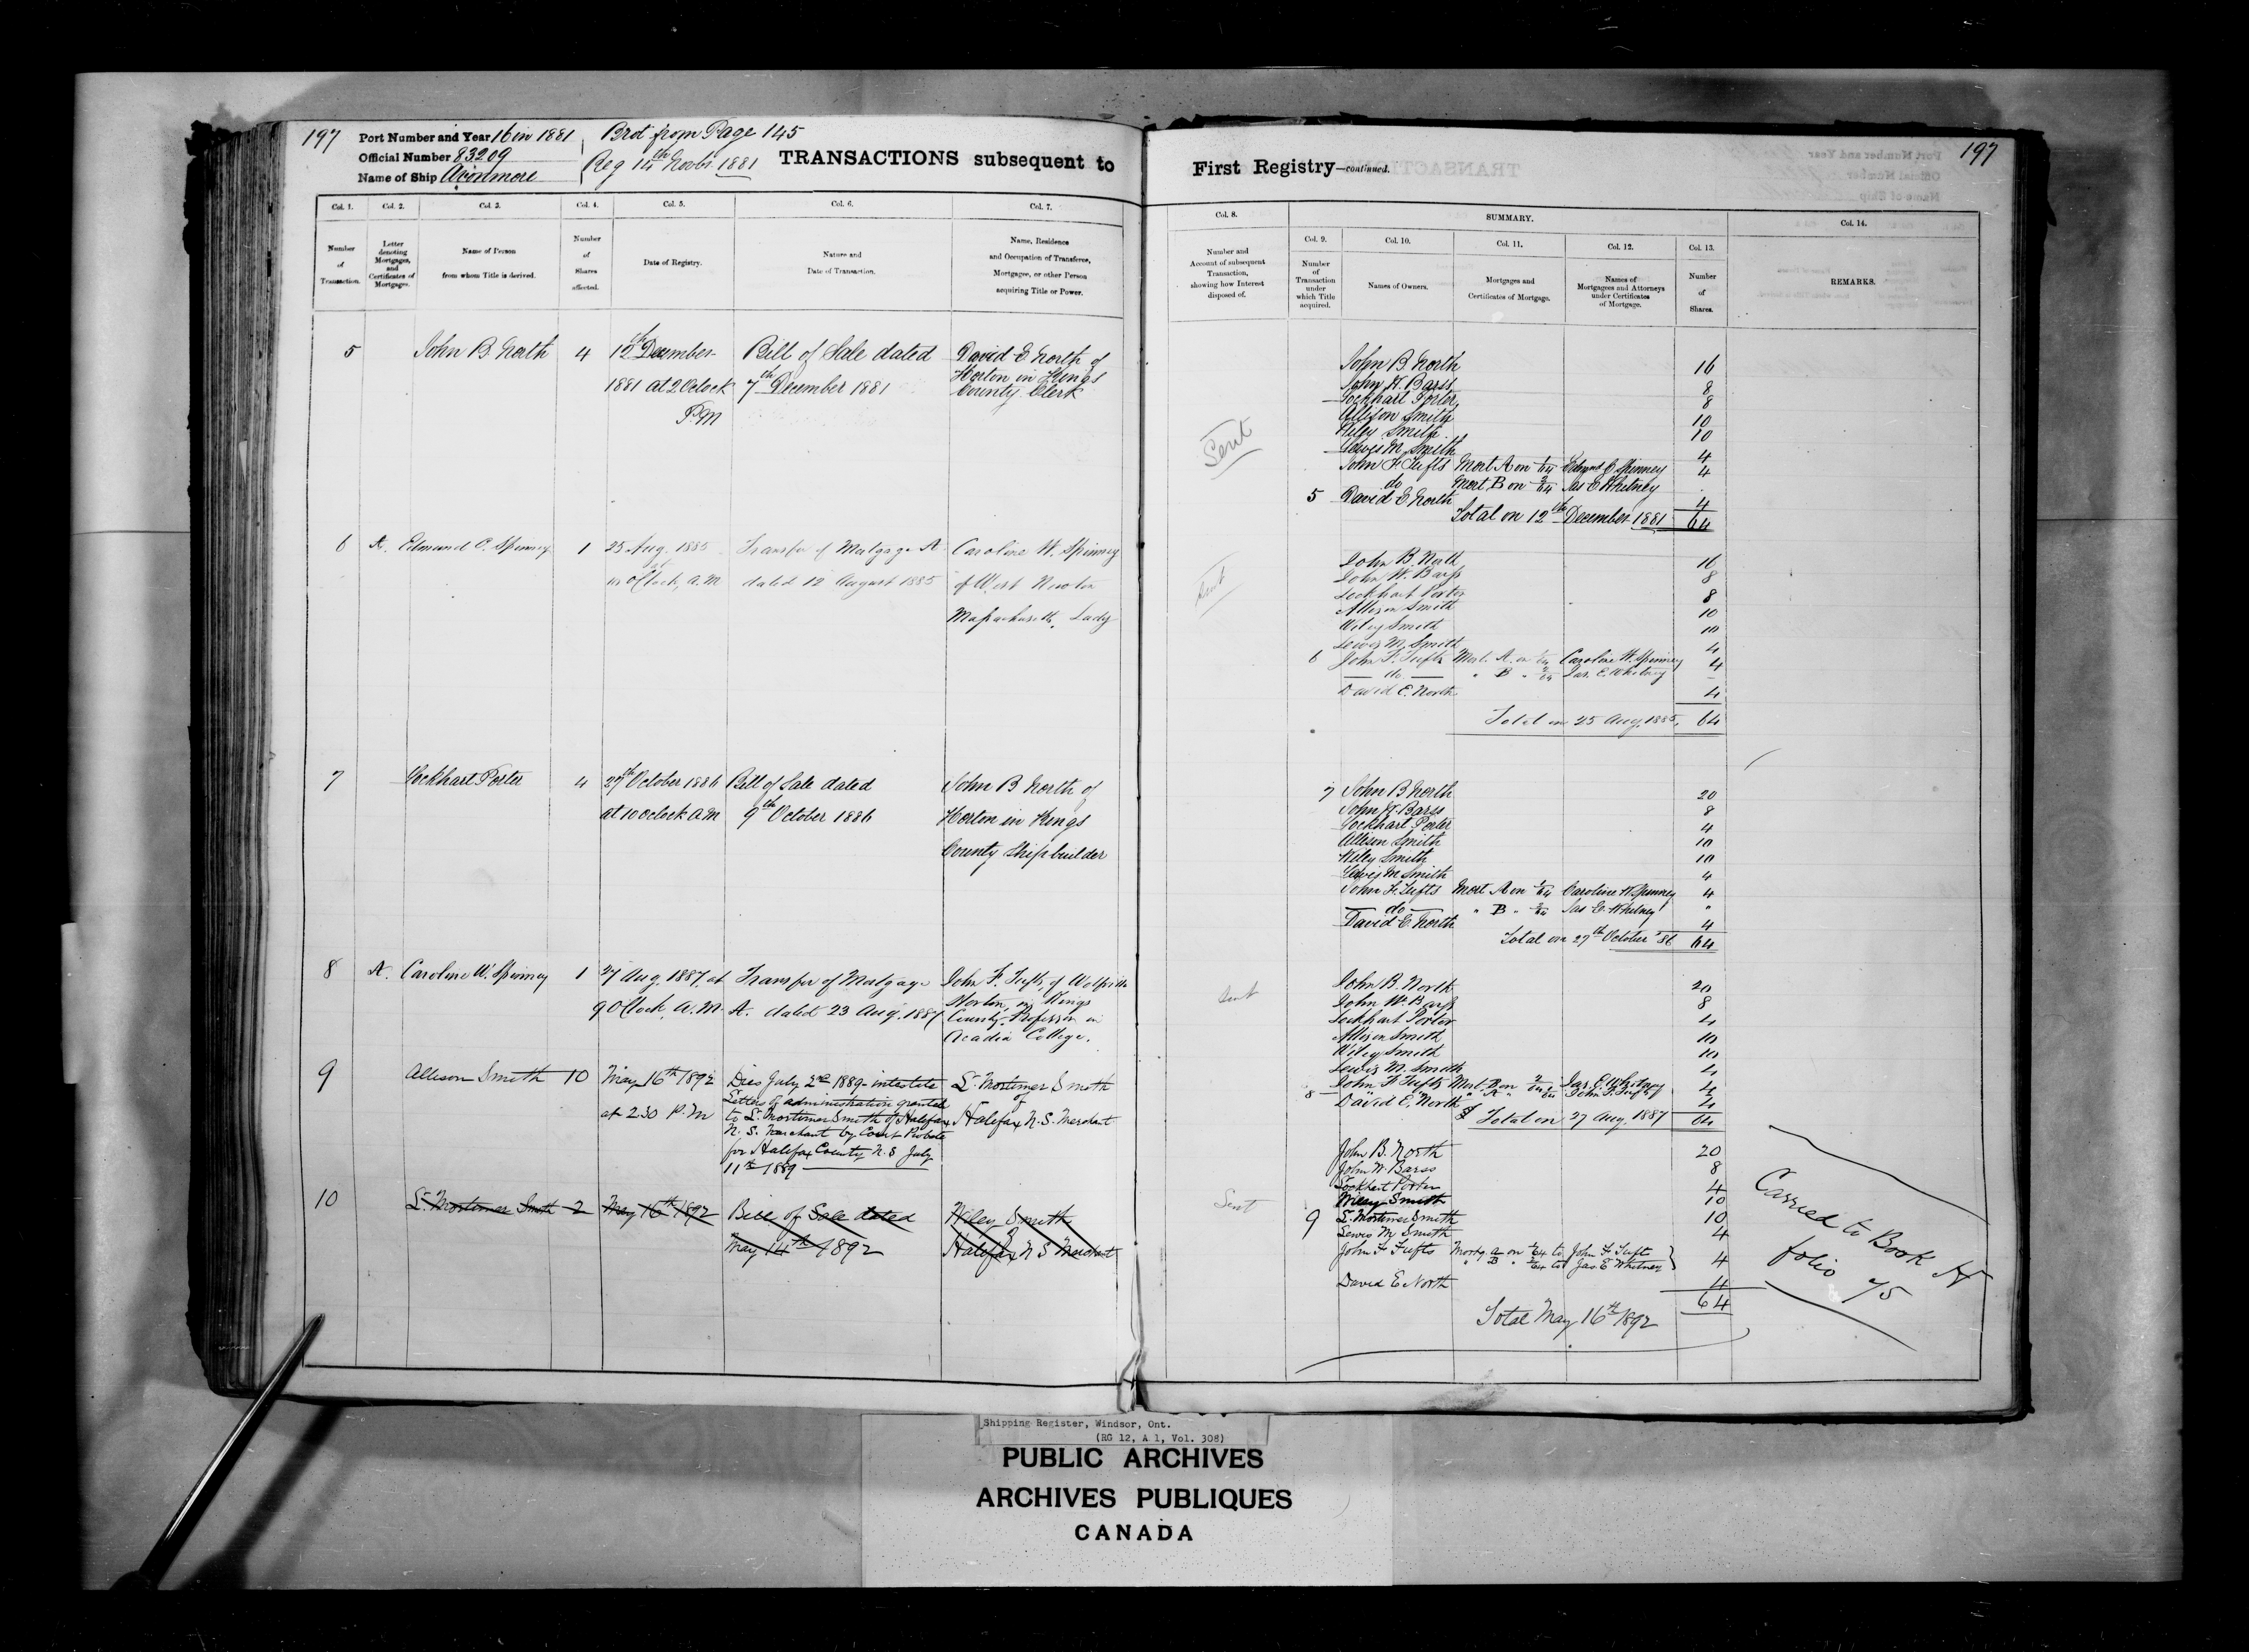 197
Port Number and Year 16 in 1881
Brot from Page 145
Official Number 83209
Reg 14th Novbr 1881
Name of Ship Avonmore
TRANSACTIONS subsequent to
First Registry—continued.
197
Col. 1.
Col. 2.
Col. 3.
Col. 4.
Col. 5.
Col. 6.
Col. 7.
Number
of
Transaction.
Letter
denoting
Mortgages,
and
Certificates of
Mortgages.
Name of Person
from whom Title is derived.
Number
of
Shares
affected.
Date of Registry.
Nature and
Date of Transaction.
Name, Residence
and Occupation of Transferee,
Mortgagee, or other Person
acquiring Title or Power.
Col. 8.
Number and
Account of subsequent
Transaction,
showing how Interest
disposed of.
SUMMARY.
Col. 9.
Col. 10.
Col. 11.
Col. 12.
Col. 13.
Col. 14.
Number
of
Transaction
under
which Title
acquired.
Names of Owners.
Mortgages and
Certificates of Mortgage.
Names of
Mortgagees and Attorneys
under Certificates
of Mortgage.
Number
of
Shares.
REMARKS.
5 John B. North 4
12th December
1881 at 2 Oclock
P.M
Bill of Sale dated
7th December 1881
David E North of
Horton in Kings
County Clerk
Sent
John B North 16
John W. Barss 8
Lockhart Porter 8
Allison Smith 10
Wiley Smith 10
Lewis M. Smith 4
John F Tufts Mort A on 1/64 Edmund C Spinney 4
do Mort B on 2/64 Jas E Whitney
5 David E. North 4
Total on 12th December 1881 64
6 A. Edmund C. Spinney 1
25 Aug. 1885
OClock, A.M
Transfer of Mortgage A.
dated 12 August 1885
Caroline W. Spinney
of West Newton
Massachusetts, Lady
Sent
John B. North 16
John W. Barss 8
Lockhart Porter 8
Allison Smith 10
Wiley Smith 10
Lewis M. Smith 4
6 John F. Tufts Mort. A. on 1/64 Caroline W. Spinney 4
do. " B " 2/64 Jas. E. Whitney
David E. North 4
Total on 25 Aug. 1885. 64
7 Lockhart Porter 4
27th October 1886
at 10 oclock AM
Bill of Sale dated
9th October 1886
John B North of
Horton in Kings
County Shipbuilder
7 John B North 20
John W. Barss 8
Lockhart Porter 4
Allison Smith 10
Wiley Smith 10
Lewis M Smith 4
John F. Tufts Mort A on 1/64 Caroline W. Spinney 4
do " B " 2/64 Jas E. Whitney "
David E. North 4
Total on 27th October '86 64
8 A. Caroline W. Spinney 1
27 Aug. 1887, at
9 OClock, A.M.
Transfer of Mortgage
A. dated 23 Aug. 1887
John F. Tufts, of Wolfville
Horton, in Kings
County, Professor in
Acadia College.
Sent
John B. North 20
John W. Barss 8
Lockhart Porter 4
Allison Smith 10
Wiley Smith 10
Lewis M. Smith 4
John F Tufts Mort. B on 2/64 Jas. E. Whitney 4
8 " A " 1/64 John F. Tufts
David E. North 4
Total on 27 Aug. 1887 64
9 Allison Smith 10
May 16th 1892
at 2.30 P.M
Dies July 2nd 1889 - intestate
Letters of administration granted
to L. Mortimer Smith of Halifax
N.S. Merchant by Court Probate
for Halifax County N.S July
11th 1889
L. Mortimer Smith
of
Halifax N.S. Merchant
John B. North 20
John W. Barss 8
Lockhart Porter 4
Wiley Smith 10
9 L. Mortimer Smith 10
Lewis M. Smith 4
John F Tufts Mortg. A on 1/64 to John F Tufts
" B " 2/64 to Jas. E Whitney } 4
David E North 4
64
Total May 16th 1892
10 L. Mortimer Smith 2
May 16th 1892
Bill of Sale dated
May 14th 1892
Wiley Smith
of
Halifax N S Merchant
Sent
Carried to Book H
folio 75
Shipping Register, Windsor, Ont.
(RG 12, A 1, Vol. 308)
PUBLIC ARCHIVES
ARCHIVES PUBLIQUES
CANADA